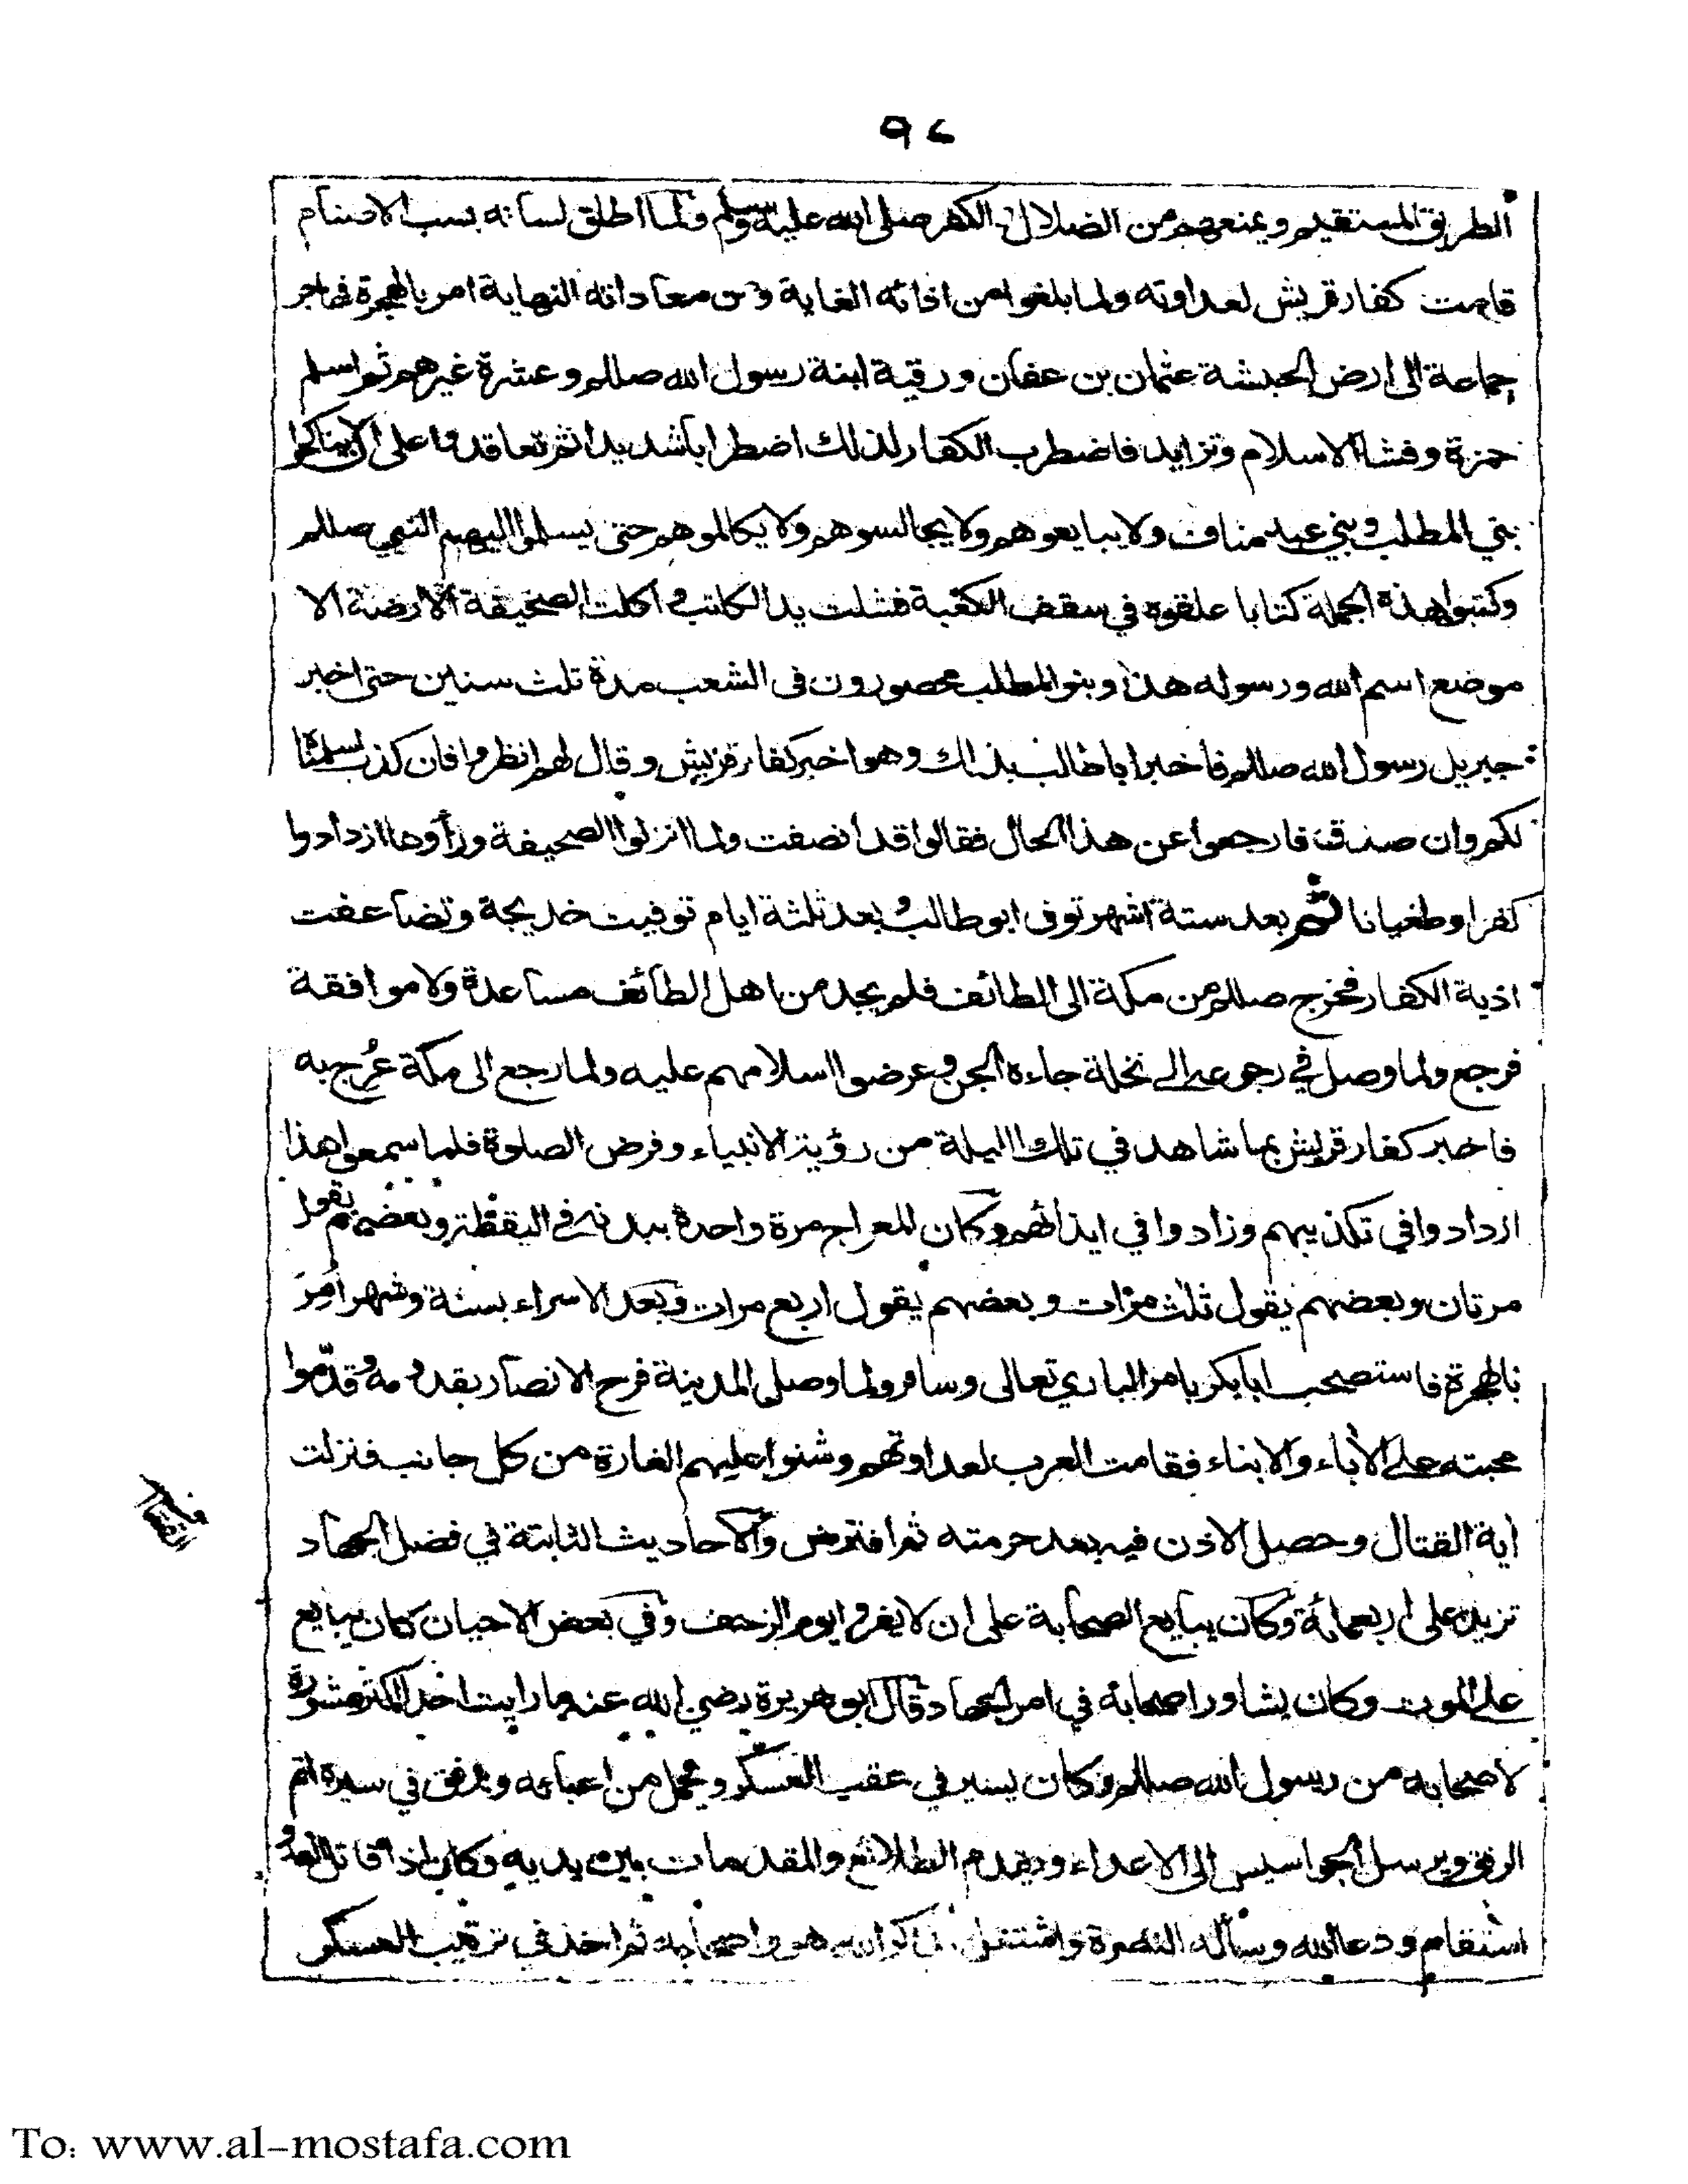 ٩٤
الطريق المستقيم ويمنعهم من الضلال الكفر صلى الله عليه وسلم ولما اطلق لسانه بسب الاصنام
قامت كفار قريش لعداوته ولما بلغوا من اذائه الغاية ومن معاداته النهاية امر بالهجرة فهاجر
جماعة الى ارض الحبشة عثمان بن عفان ورقية ابنة رسول الله صللم وعشرة غيرهم ثم اسلم
حمزة وفشا الاسلام وتزايد فاضطرب الكفار لذلك اضطرابا شديدا ثم تعاقدوا على ان لا يناكحوا
بني المطلب وبني عبد مناف ولا يبايعوهم ولا يجالسوهم ولا يكالموهم حتى يسلموا اليهم النبي صللم
وكتبوا هذه الجملة كتابا علقوه في سقف الكعبة فشلت يد الكاتب واكلت الصحيفة الارضة الا
موضع اسم الله ورسوله هذا وبنو المطلب محصورون في الشعب مدة ثلث سنين حتى اخبر
جبريل رسول الله صللم فاخبر ابا طالب بذلك وهو اخبر كفار قريش وقال لهم انظروا فان كذب سلمناه
لكم وان صدق فارجعوا عن هذا الحال فقالوا قد انصفت ولما انزلوا الصحيفة ورأوها ازدادوا
كفرا وطغيانا ثم بعد ستة اشهر توفى ابو طالب وبعد ثلثة ايام توفيت خديجة وتضاعفت
اذية الكفار فخرج صللم من مكة الى الطائف فلم يجد من اهل الطائف مساعدة ولا موافقة
فرجع ولما وصل في رجوعه الى نخلة جاءه الجن وعرضوا اسلامهم عليه ولما رجع الى مكة عُرج به
فاخبر كفار قريش بما شاهد في تلك الليلة من رؤية الانبياء وفرض الصلوة فلما سمعوا هذا
ازدادوا في تكذيبهم وزادوا في ايذائهم وكان المعراج مرة واحدة ببدنه في اليقظة وبعضهم يقول
مرتان وبعضهم يقول ثلث مرات وبعضهم يقول اربع مرات وبعد الاسراء بسنة وشهر امر
بالهجرة فاستصحب ابا بكر بامر الباري تعالى وسافر ولما وصل المدينة فرح الانصار بقدومه وقدموا
محبته على الاباء والابناء فقامت العرب لعداوتهم وشنوا عليهم الغارة من كل جانب فنزلت
اية القتال وحصل الاذن فيه بعد حرمته ثم افترض والاحاديث الثابتة في فضل الجهاد
تزيد على اربعمائة وكان يبايع الصحابة على ان لا يفروا يوم الزحف وفي بعض الاحيان كان يبايع
على الموت وكان يشاور اصحابه في امر الجهاد وقال ابو هريرة رضي الله عنه ما رايت احدا اكثر مشورة
لاصحابه من رسول الله صللم وكان يسير في عقب العسكر ويحمل من اعبائه ويرفق في سيره اتم
الرفق ويرسل الجواسيس الى الاعداء ويقدم الطلائع والمقدمات بين يديه وكان اذا قاتل العدو
استقام ودعا الله وسأله النصرة واشتغل هو واصحابه ثم اخذ في ترتيب العسكر
To: www.al-mostafa.com